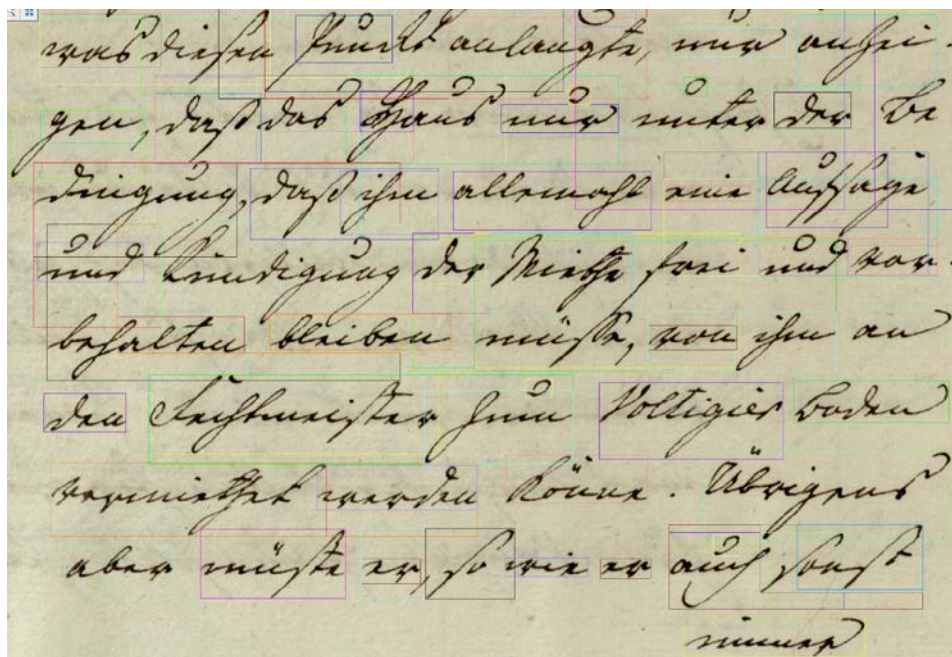 was diesen Punckt anlangte, nur anzei-
gen, daß das Haus nur unter der Be
dingung, daß ihm allemahl eine Aufsage
und Kündigung der Miethe frei und vor-
behalten bleiben müsse, von ihm an
den Fechtmeister zum Voltigier boden
vermiethet werden könne. Übrigens
aber müste er, so wie er auch sonst
immer